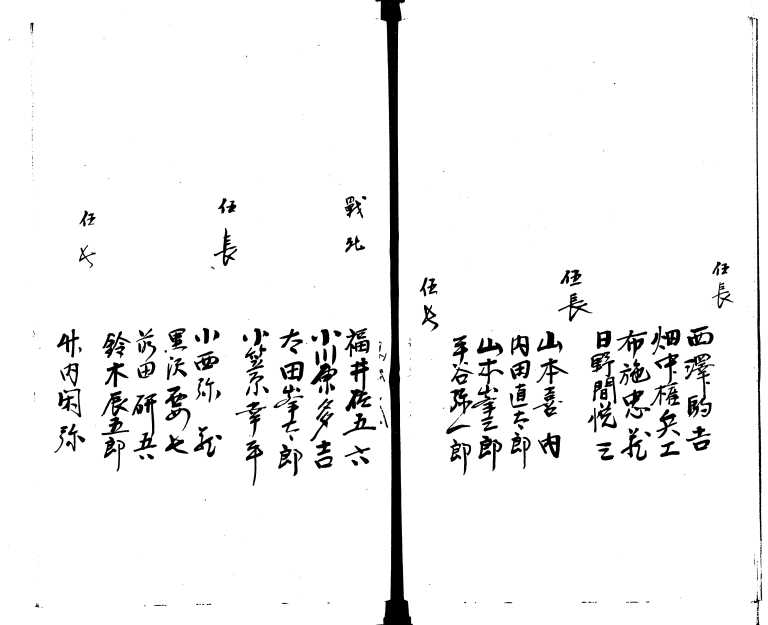 伍長
西澤駒吉
畑中権兵工
布施忠蔵
日野間悦三
伍長
山本喜内
内田直太郎
山本峯三郎
平谷弥一郎
伍長
福井佐五六
戰死
小川原多吉
太田峯太郎
小笠原幸平
伍長
小西弥蔵
黒沢要七
前田研五六
鈴木辰五郎
伍長
竹内図弥